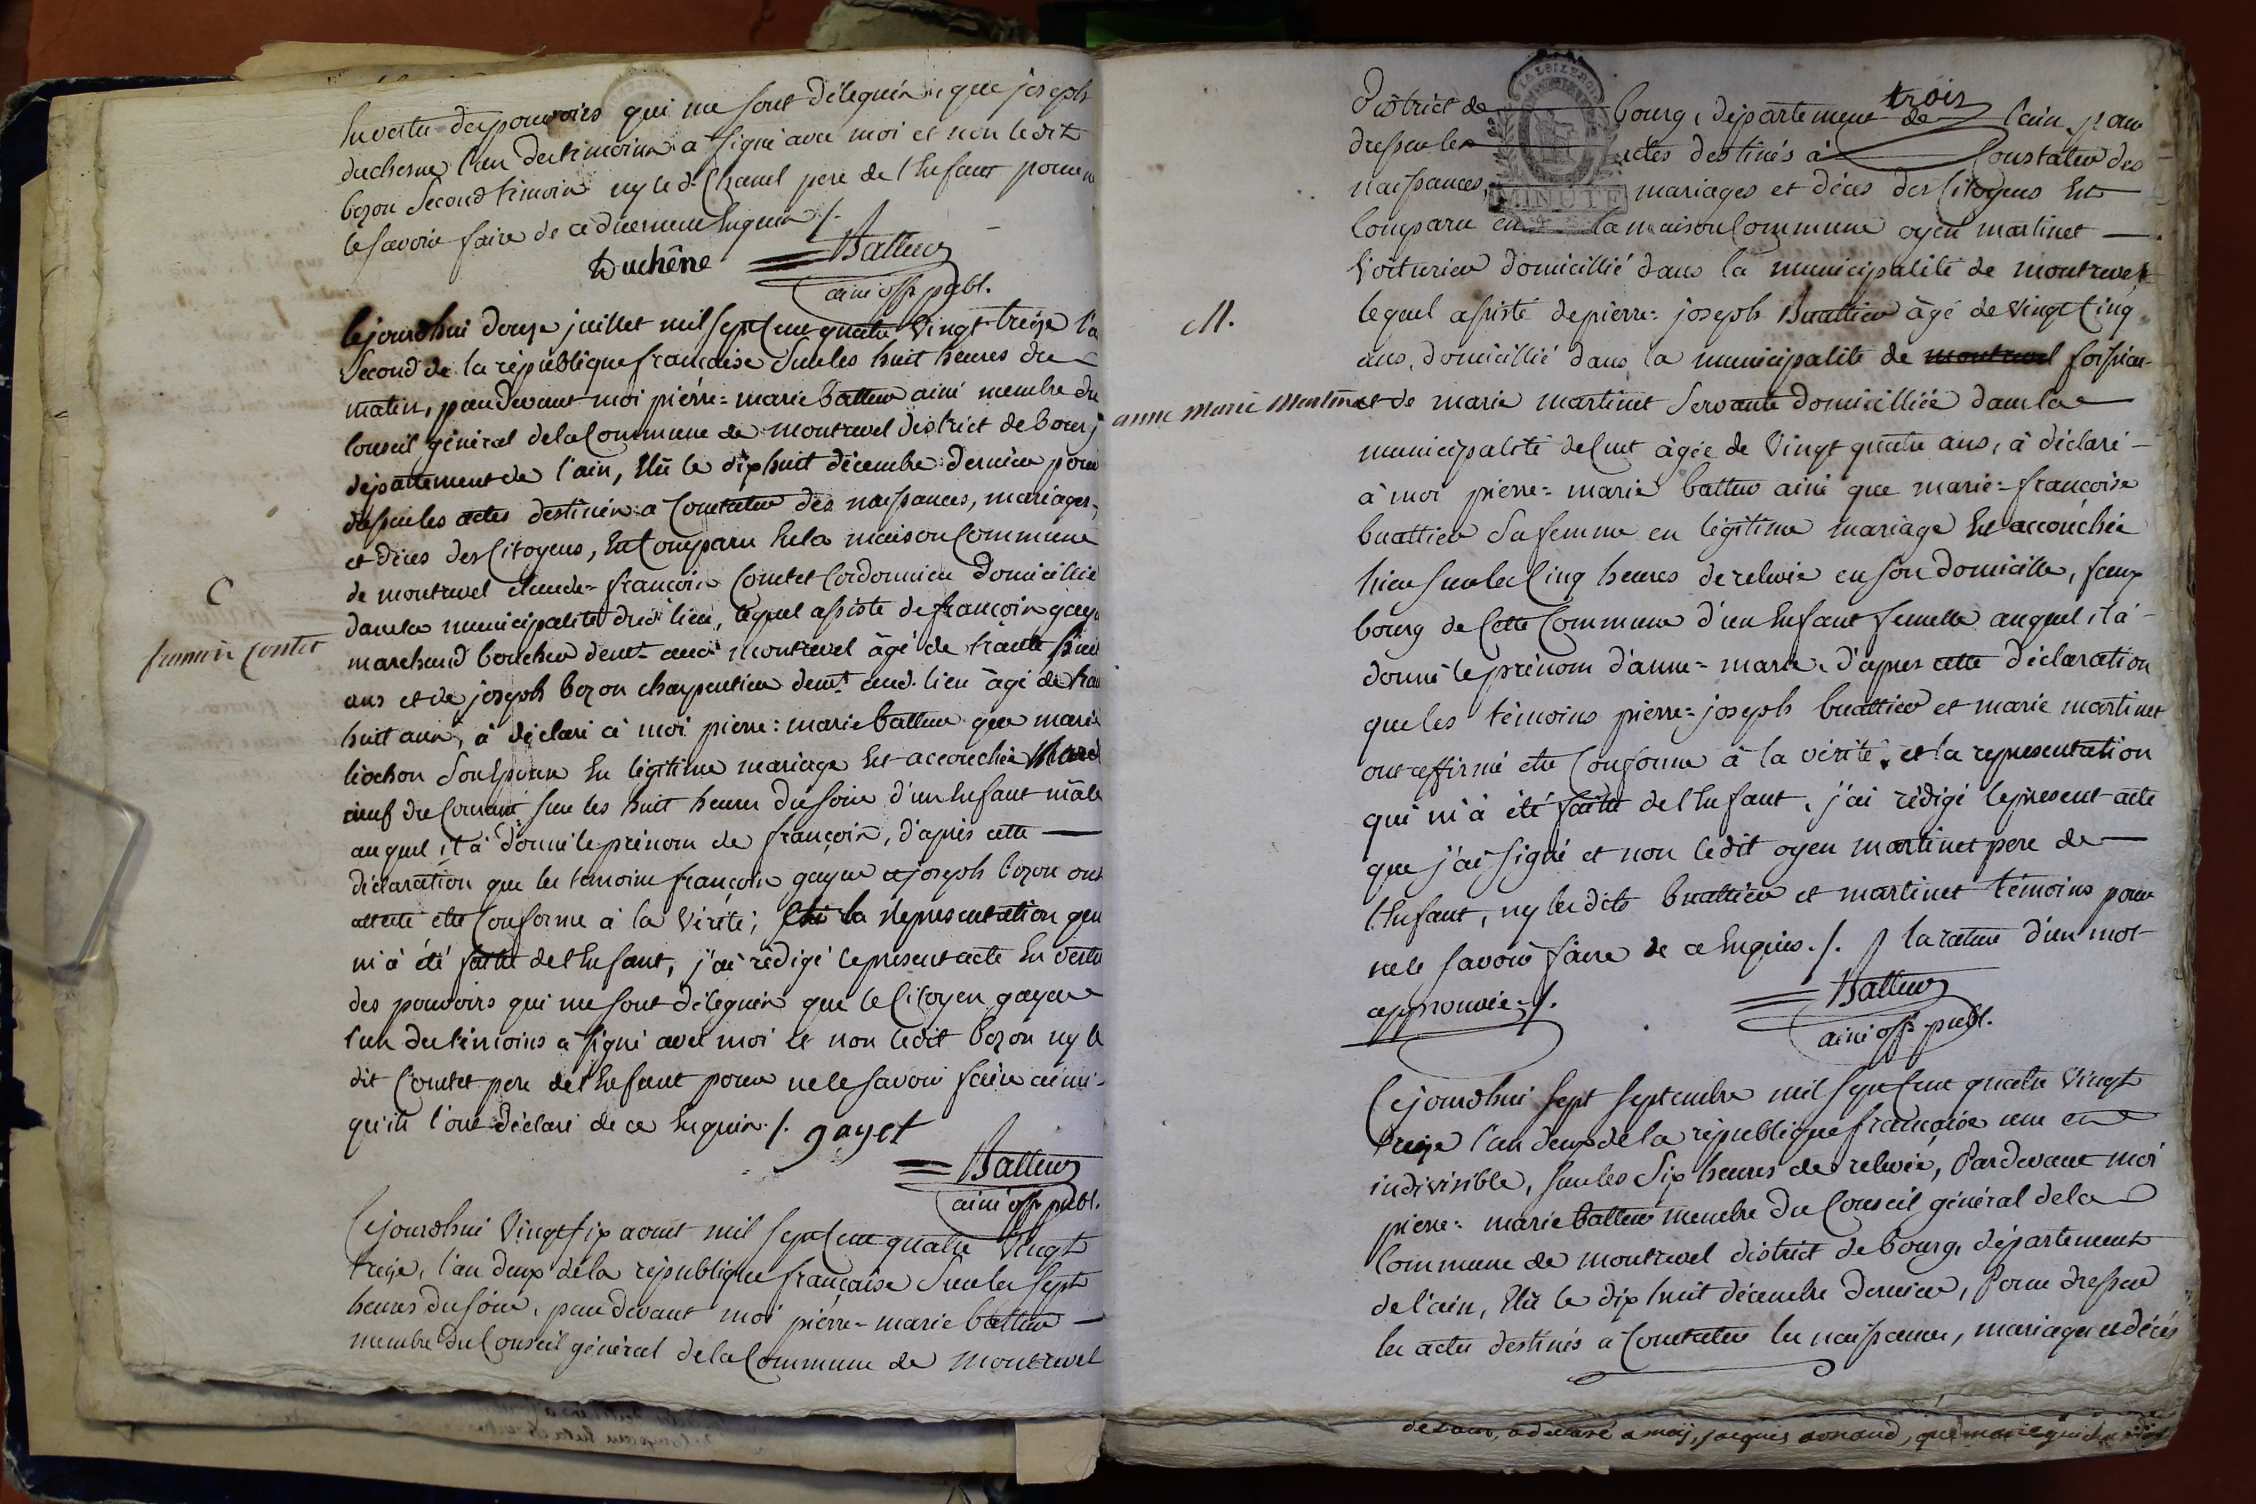 En vertu des pouvoirs qui me sont délegués que joseph
duchesne l'un des témoins a signé avec moi et non ledit
bozon second témoin ny le d. Chanel pere de l'Enfant pour ne
le savoir faire de ce duement Enquis ./.
Duchêne Batteur
ainé off. publ.
Cejourdhui douze juillet mil sept Cent quatre Vingt treize l'a
Second de la république francaise sur les huit heures du
matin, pardevant moi piérre=marie batteur ainé membre du
Conseil général de la Commune de montrevel district de bourg
département de l'ain, Elû le dix huit décembre dernier pour
dresser les actes destinés a Constater des naissances, mariages,
et décès des Citoyens, Est Comparu En la maison Commune
de montrevel claude=francois Contet Cordonnier domicillié
C
dans la municipalité dud. lieu, lequel assisté de francois gayet
francois Contet
marchand boucher demt. aud. montrevel âgé de trante huit
ans et de joseph bozon charpentier demt. aud. lieu âgé de tran
huit ans, a déclaré à moi pierre=marie batteur que marie
liochon son Epouse En légitime mariage Est accouchée Mardi
neuf du Courant sur les huit heures du soir d'un Enfant mâle
auquel il à donné le prénom de francois, d'après cette
déclaration que les temoins francois gayet et joseph bozon ont
attesté être Conforme à la Vérité; Et la représentation qui
m'à été faitte de l'Enfant, j'ai rédigé le présent acte En vertu
des pouvoirs qui me sont délegués que le Citoyen gayet
l'un des témoins a signé avec moi et non ledit bozon ny le
dit Contet pere de l'Enfant pour ne le savoir faire ainsi
qu'ils l'ont déclaré de ce Enquis ./. gayet
Batteur
ainé off. publ.
Cejourdhui Vingt six aout mil sept Cent quatre Vingt
treize, l'an deux de la république francaise sur les sept
heures du soir, par devant moi piérre=marie batteur
membre du Conseil général de la Commune de montrevel
trois
District de bourg, département de l'ain, pour
dresser les actes destinés à Constater des
naissances, mariages et décès des Citoyens Est
MINUTE
Comparu en la maison Commune oyen martinet
Voiturier domicillié dans la municipalité de montrevel
M.
lequel assisté de pierre=joseph Buattier âgé de Vingt Cinq
ans, domicillié dans la municipalité de montrevel foissiat
anne marie Martinet
et de marie martinet Servante domicilliée dans la
municipalité de Cuet âgée de Vingt quatre ans, à déclaré
à moi pierre=marie batteur ainé que marie=francoise
buattier sa femme en légitime mariage Est accouchée
hier sur les Cinq heures de relevée en son domicille, faux
bourg de Cette Commune d'un Enfant femelle auquel il à
donné le prénom d'anne=marie. d'après cette déclaration
que les témoins pierre=joseph buattier et marie martinet
ont affirmé être Conforme à la vérité, et la représentation
qui m'à été faitte de l'Enfant, j'ai rédigé le présent acte
que j'ai signé et non ledit oyen martinet pere de
l'Enfant, ny lesdits buattier et martinet témoins pour
ne le savoir faire de ce Enquis ./. la rature d'un mot
approuvée ./.
Batteur
ainé off. publ.
Cejourdhui sept septembre mil sept Cent quatre Vingt
treize l'an deux de la république francaise une et
indivisible, sur les six heures de relevée, Pardevant moi
pierre=marie batteur membre du Conseil général de la
Commune de montrevel district de bourg, département
de l'ain, Elû le dix huit décembre dernier, Pour dresser
les actes destinés a Constater les naissances, mariages et décés
a déclaré a moy, jacques, que marie